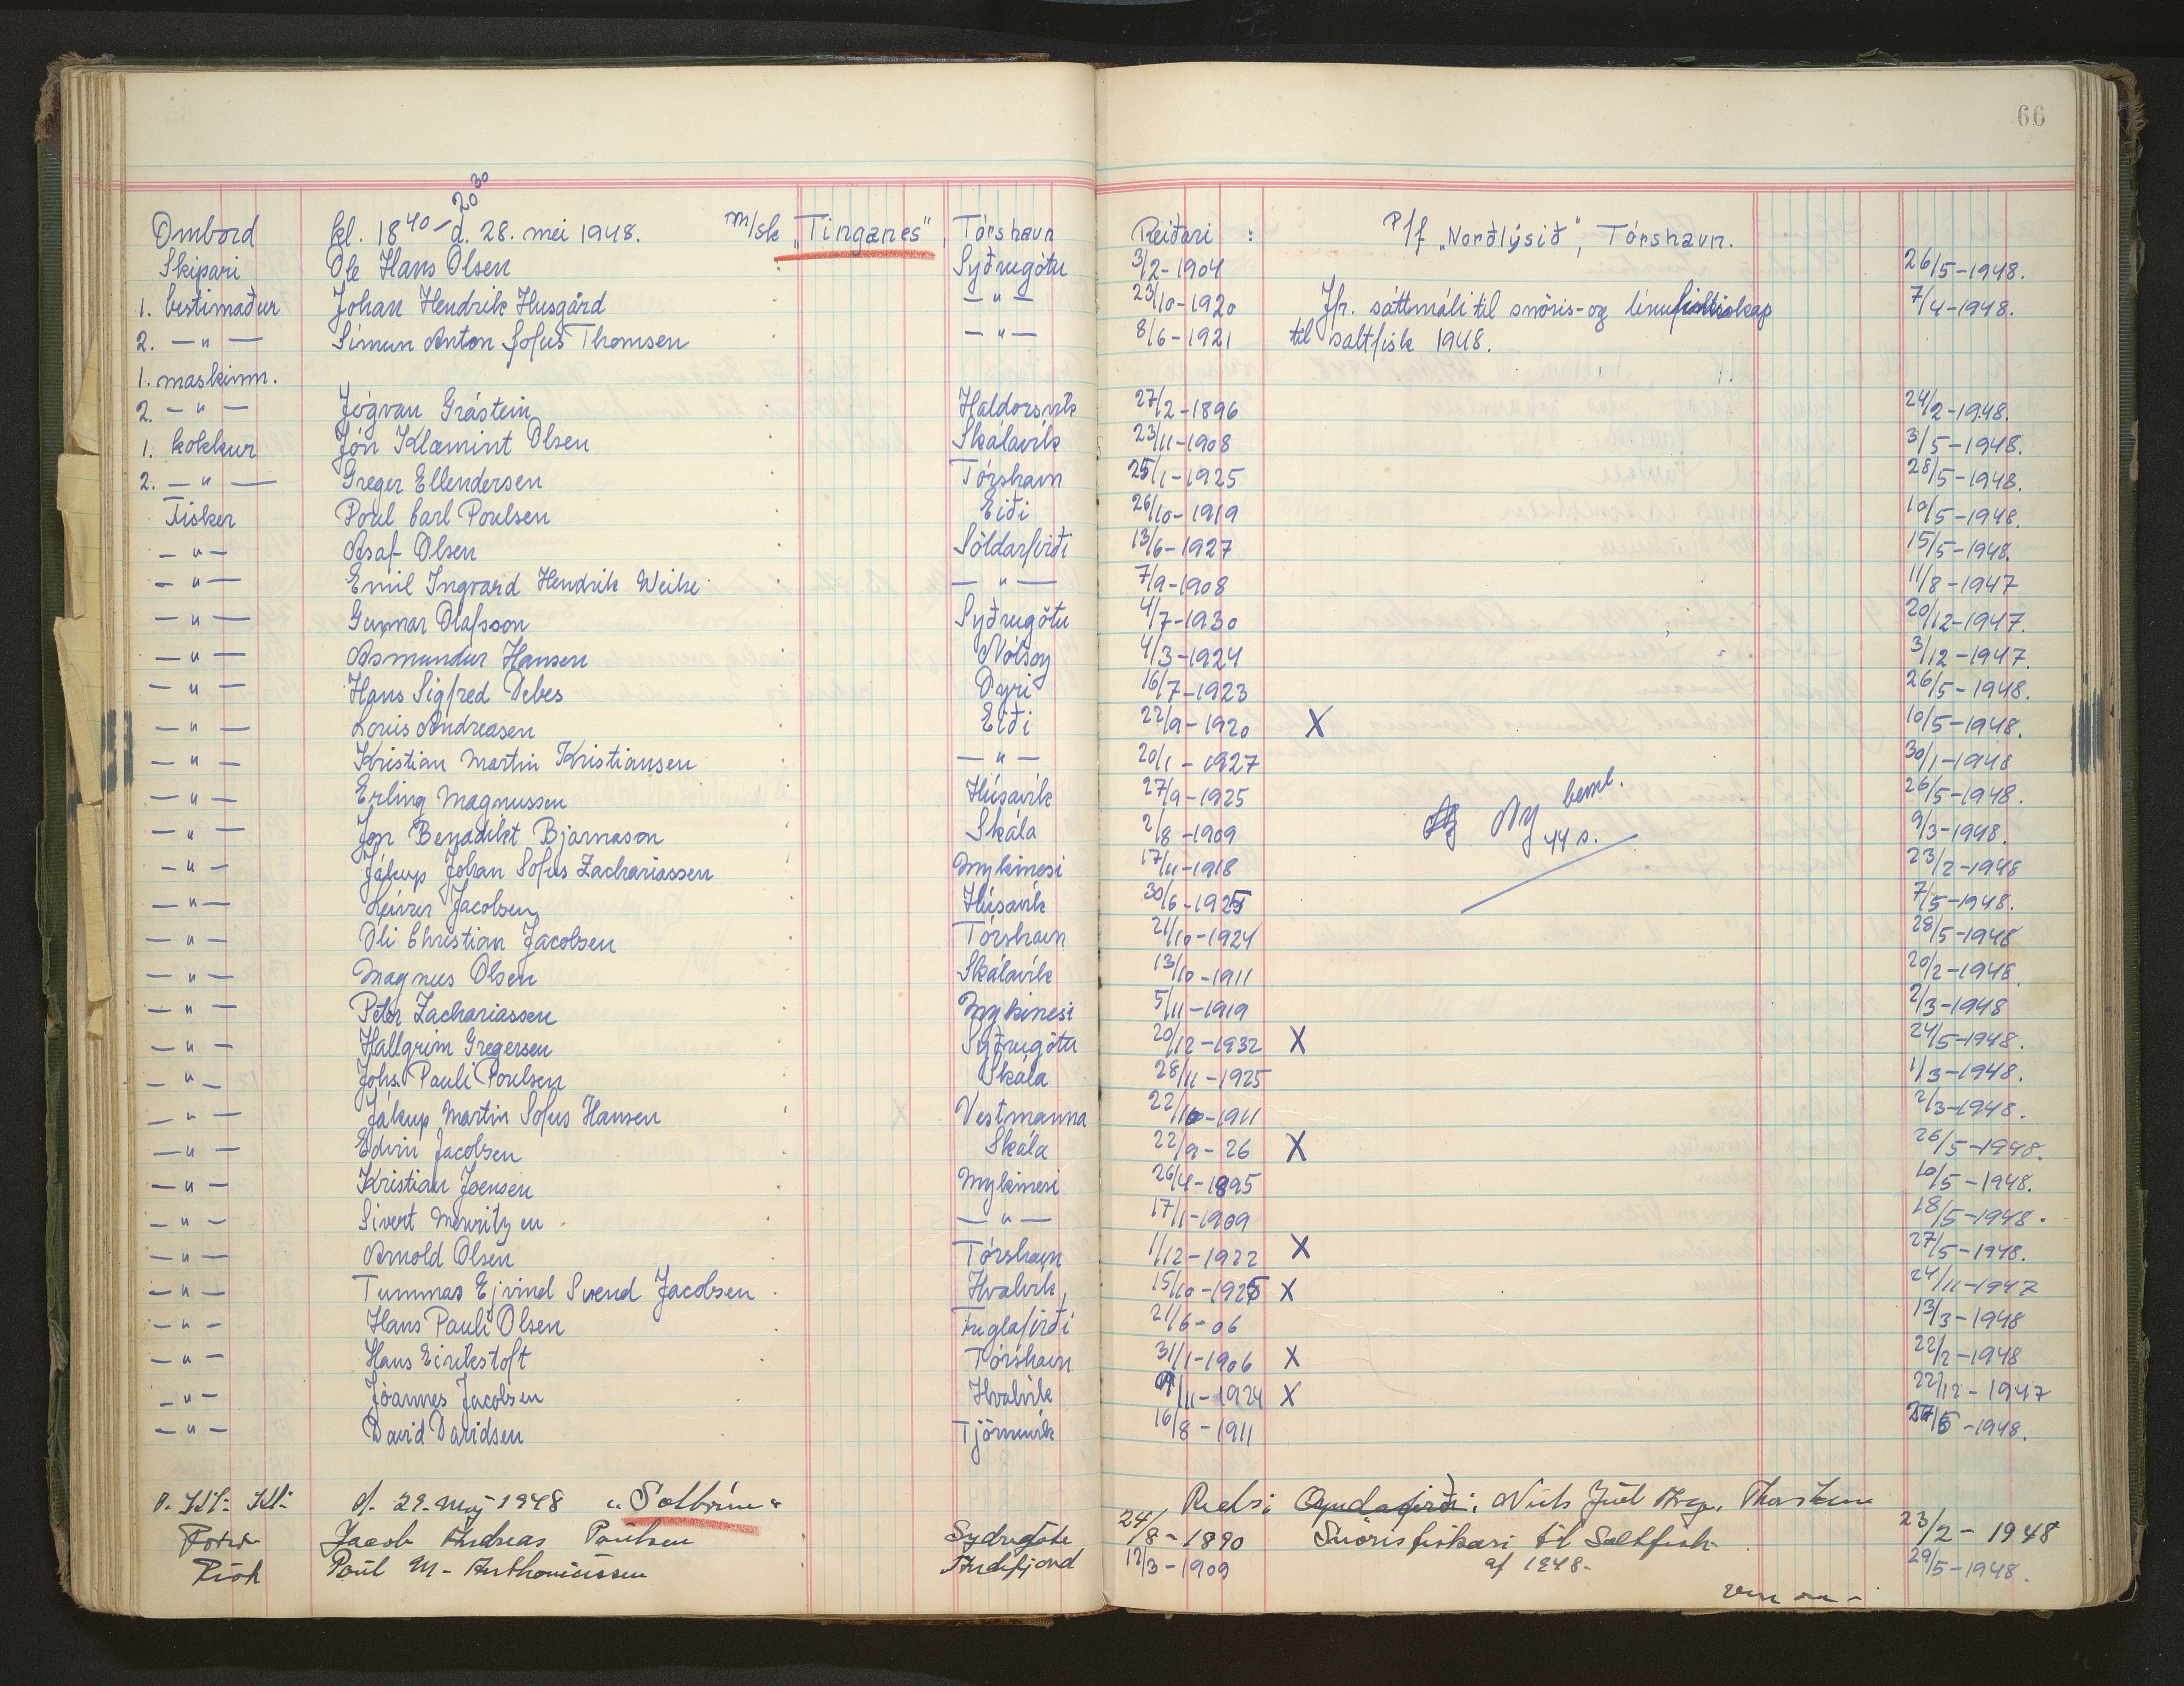 66
Ombord kl. 18 40 – 20 30 d. 28. mei 1948. m/sk „Tinganes", Tórshavn Reiðari : P/f „Norðlýsið", Tórshavn.
Skipari Ole Hans Olsen Syðrugøtu 3/2-1904 26/5-1948.
1. bestimaður Johan Hendrik Husgård — " — 23/10-1920 Jfr. sáttmáli til snøris- og línufiskiskap 7/4-1948.
2. — " — Símun Anton Sofus Thomsen — " — 8/6-1921 til saltfisk 1948.
1. maskinm.
2. — " — Jógvan Grástein Haldorsvík 27/2-1896 24/2-1948.
1. kokkur Jón Klæmint Olsen Skálavík 23/11-1908 3/5-1948.
2. — " — Greger Ellendersen Tórshavn 25/1-1925 28/5-1948.
Fisker Poul Carl Poulsen Eiði 26/10-1919 10/5-1948.
— " — Asaf Olsen Söldarfirði 13/6-1927 15/5-1948.
— " — Emil Ingvard Hendrik Weihe — " — 7/9-1908 11/8-1947
— " — Gunnar Olafsson Syðrugøtu 4/7-1930 20/12-1947.
— " — Asmundur Hansen Nólsoy 4/3-1924 3/12-1947.
— " — Hans Sigfred Debes Oyri 16/7-1923 26/5-1948.
— " — Louis Andreasen Eiði 22/9-1920 X 10/5-1948.
— " — Kristian Martin Kristiansen — " — 20/1-1927 30/1-1948
— " — Erling Magnussen Húsavík 27/9-1925 26/5-1948.
— " — Jon Benadikt Bjarnason Skála 2/8-1909 Ny beml. 44 s. 9/3-1948.
— " — Jákup Johan Sofus Zachariassen Mykinesi 17/11-1918 23/2-1948
— " — Leivur Jacobsen Húsavík 30/6-1925 7/5-1948.
— " — Oli Christian Jacobsen Tórshavn 21/10-1924 28/5-1948
— " — Magnus Olsen Skálavík 13/10-1911 20/2-1948.
— " — Petur Zachariassen Mykinesi 5/11-1919 2/3-1948
— " — Hallgrim Gregersen Syðrugøtu 20/12-1932 X 24/5-1948.
— " — Johs. Pauli Poulsen Skála 28/11-1925 1/3-1948.
— " — Jákup Martin Sofus Hansen Vestmanna 22/10-1911 2/3-1948.
— " — Edvin Jacobsen Skála 22/9-26 X 26/5-1948.
— " — Kristian Joensen Mykinesi 26/4-1895 10/5-1948.
— " — Sivert Mouritzen — " — 17/1-1909 18/5-1948.
— " — Arnold Olsen Tórshavn 1/12-1922 X 27/5-1948.
— " — Tummas Ejvind Svend Jacobsen Hvalvík, 15/10-1925 X 24/11-1947
— " — Hans Pauli Olsen Fuglafirði 21/6-06 13/3-1948
— " — Hans Eirikstoft Tórshavn 31/1-1906 X 22/2-1948
— " — Jóannes Jacobsen Hvalvík 9/11-1924 X 22/12-1947
— " — David Davidsen Tjörnuvík 16/8-1911 27/5-1948.
d. 29. Maj 1948 „Solbrún" Reds: Oyndafirði: Niels Juel
Jacob Andreas Poulsen Sydrugøte 24/8-1890 Snørisfiskari til Saltfisk 23/2-1948
Poul M. Andefjord 12/3-1909 af 1948. 29/5-1948.